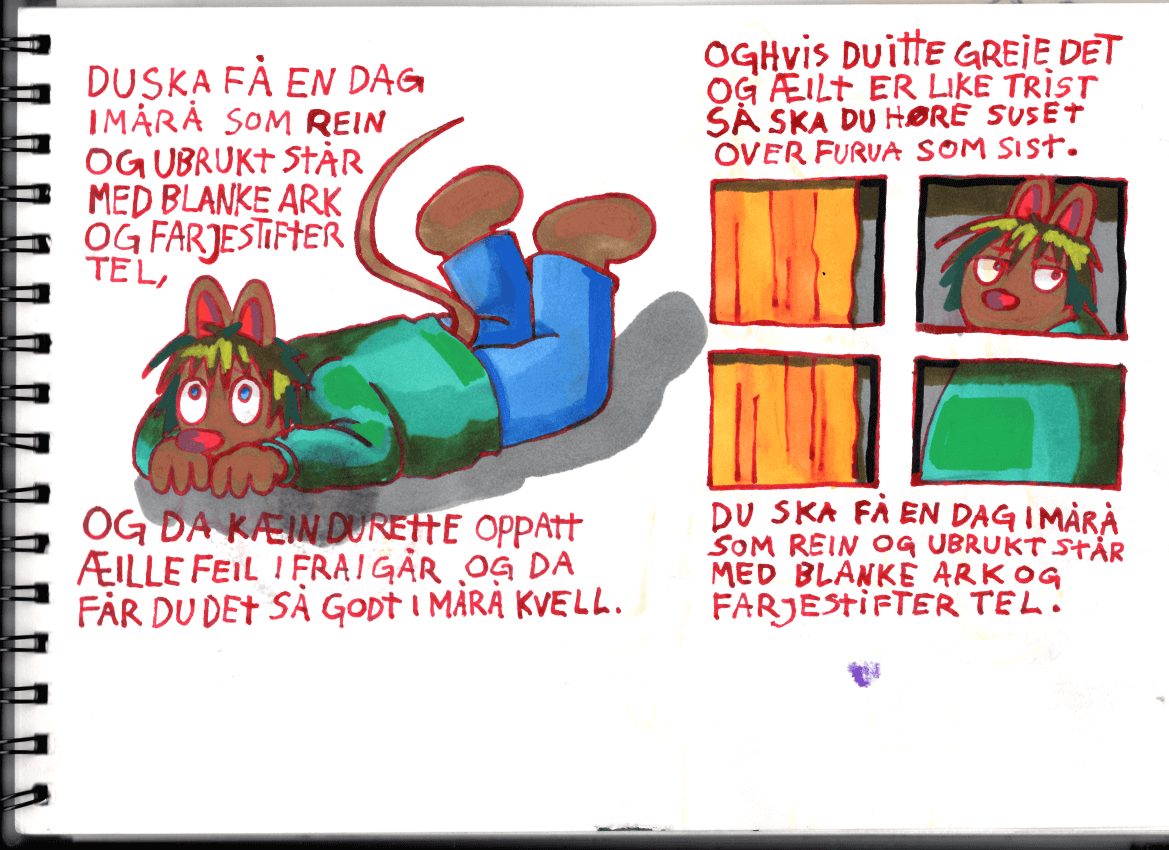 DU SKA FÅ EN DAG
I MÅRÅ SOM REIN
OG UBRUKT STÅR
MED BLANKE ARK
OG FARJESTIFTER
TEL,
OG DA KÆIN DU RETTE OPPATT
ÆILLE FEIL I FRA I GÅR OG DA
FÅR DU DET SÅ GODT I MÅRÅ KVELL.
OG HVIS DU ITTE GREIE DET
OG ÆILT ER LIKE TRIST
SÅ SKA DU HØRE SUSET
OVER FURUA SOM SIST.
DU SKA FÅ EN DAG I MÅRÅ
SOM REIN OG UBRUKT STÅR
MED BLANKE ARK OG
FARJESTIFTER TEL.